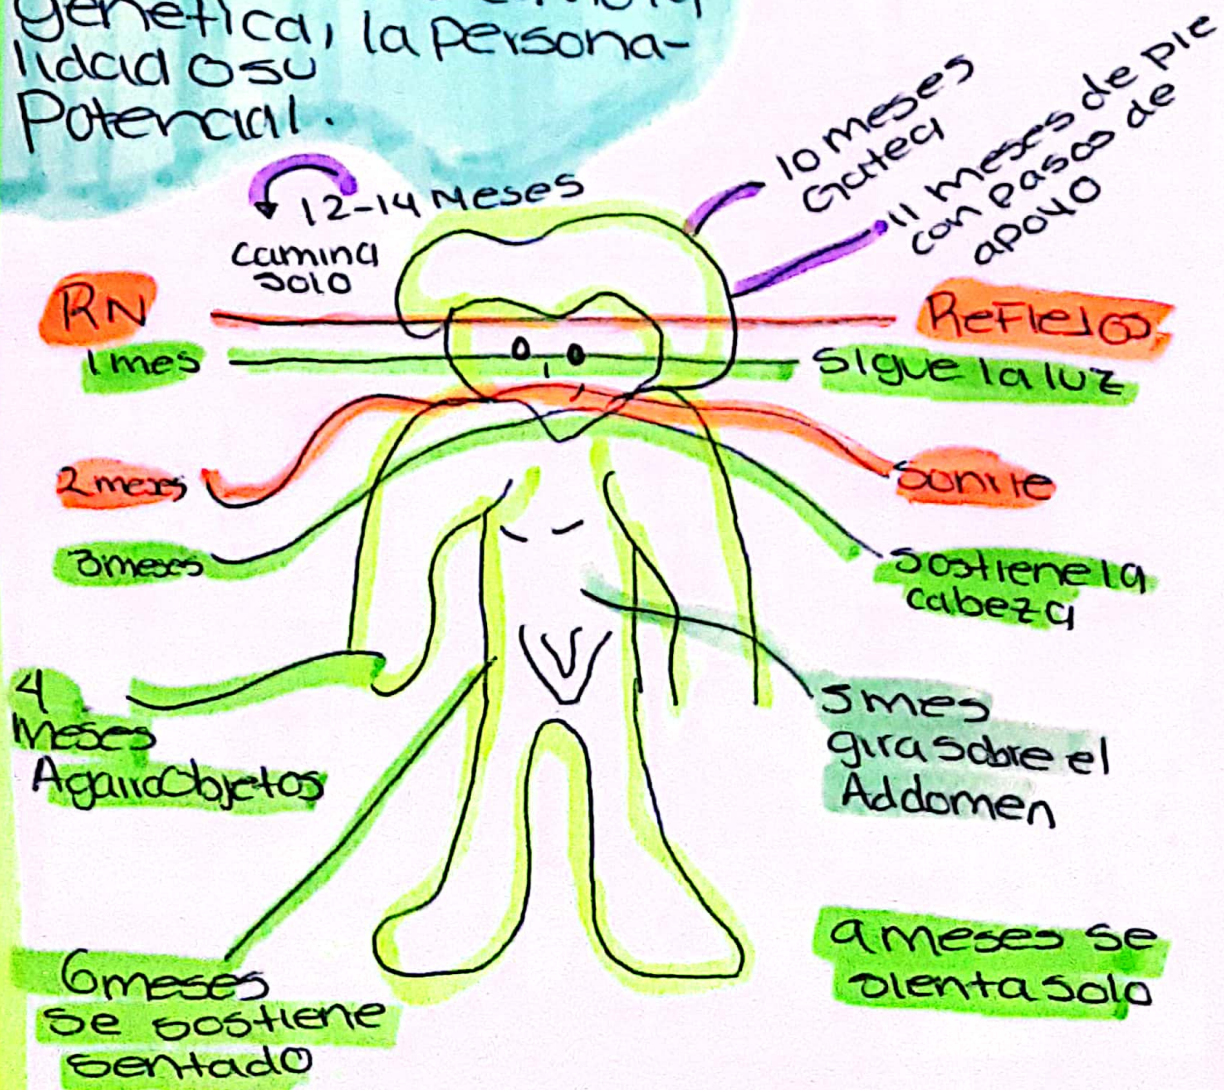 genética, la persona-
lidad o su
Potencial.
12-14 Meses
camina
solo
10 meses
Gatea
11 meses de pie
con pasos de
apoyo
RN
Reflejos
1 mes
Sigue la luz
2 meses
Sonríe
3 meses
Sostiene la
cabeza
4
Meses
Agarra Objetos
5 mes
gira sobre el
Addomen
6 meses
se sostiene
sentado
9 meses se
sienta solo